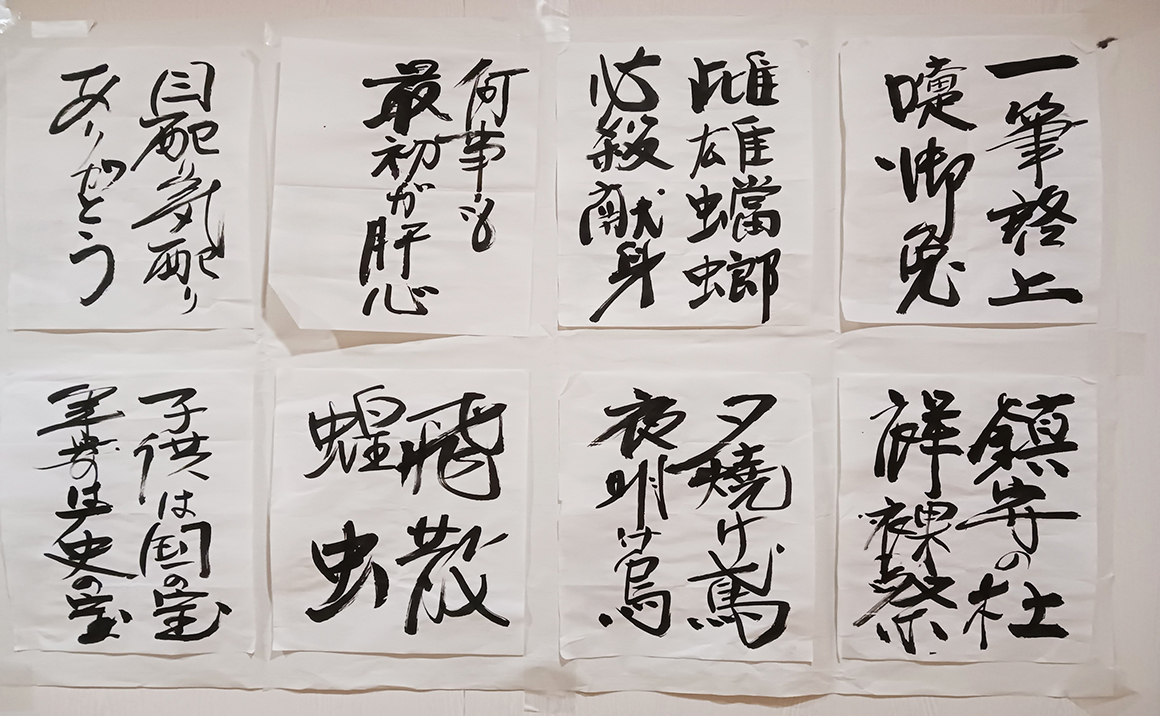 一筆啓上
嚏御免
雌雄蟷螂
必殺献身
何事も
最初が肝心
目配り気配り
ありがとう
鎮守の杜
祥裸祭
夕燒け鳶
夜明け烏
飛散
蝗虫
子供は国の宝
年寄は史の宝